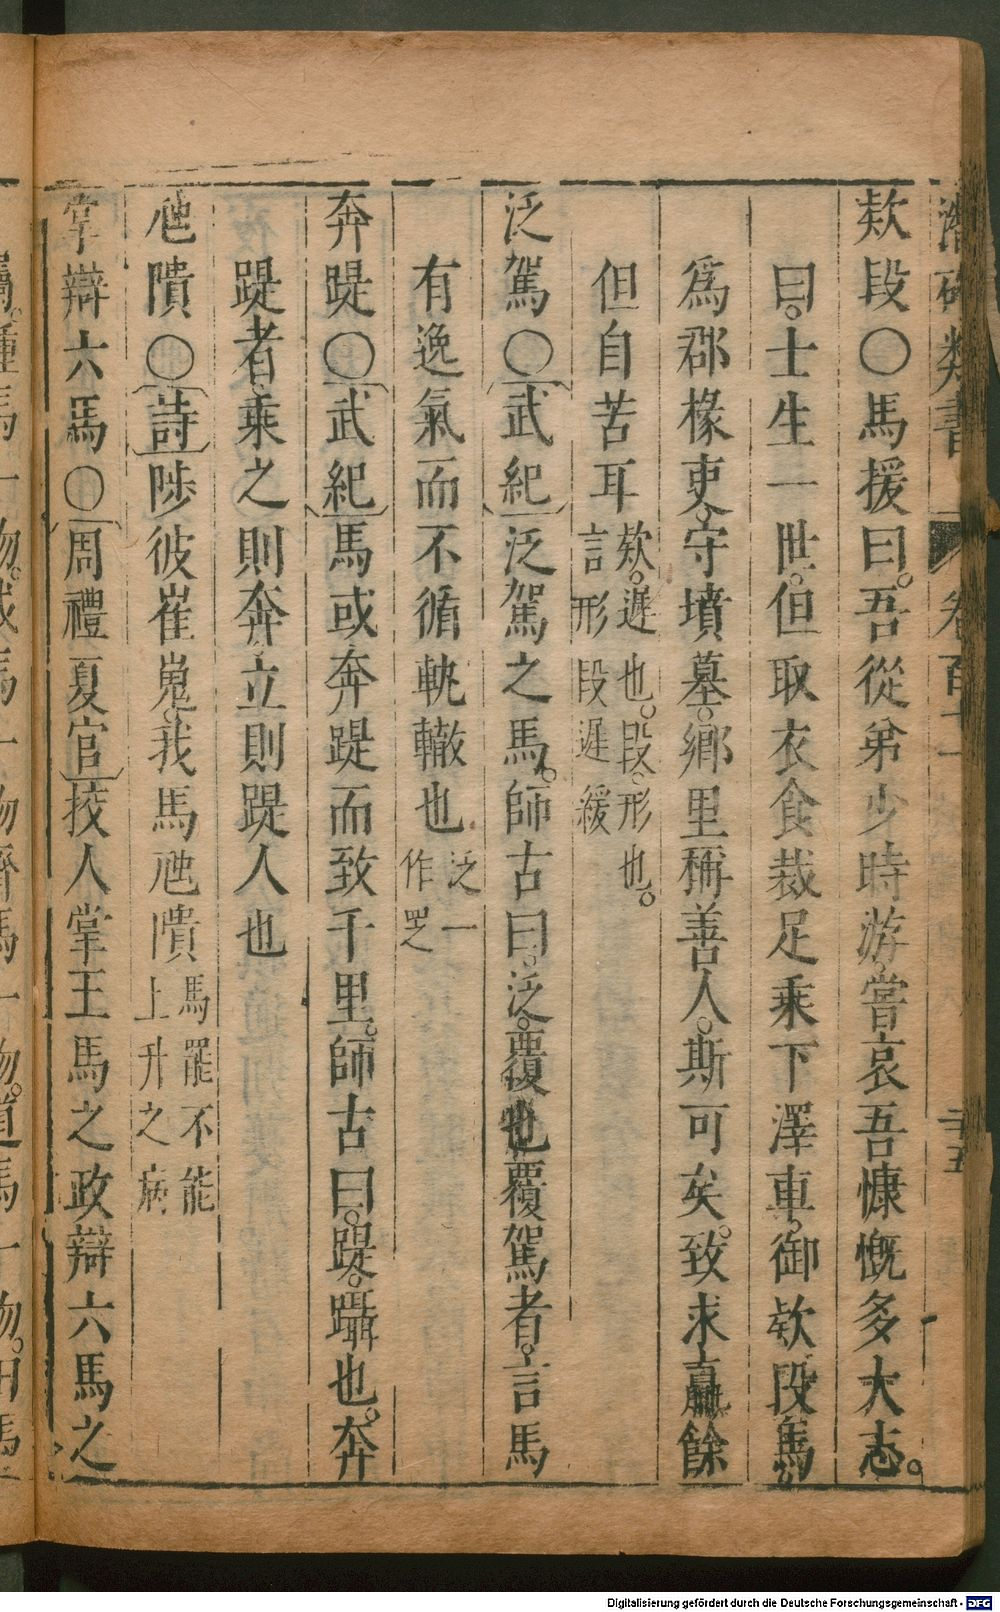 潛確類書 卷百十一 二十五
欵段○馬援曰。吾從弟少時游。嘗哀吾慷慨多大志。
曰。士生一世。但取衣食裁足乘下澤車。御欵段馬
爲郡椽吏。守墳墓。鄉里稱善人。斯可矣。致求贏餘
但自苦耳 欵。遲也。段。形也。言形段遲緩
泛駕○武紀泛駕之馬。師古曰。泛。覆也覆駕者。言馬
有逸氣而不循軌轍也 泛一作覂
奔踶○武紀馬或奔踶而致千里。師古曰。踶。躡也。奔
踶者。乘之則奔。立則踶人也
虺隤○詩陟彼崔嵬。我馬虺隤 馬罷不能上升之病
掌辯六馬○周禮夏官挍人掌王馬之政辯六馬之
屬。種馬一物。戎馬一物齊馬一物。道馬一物。田馬
Digitalisierung gefördert durch die Deutsche Forschungsgemeinschaft - DFG